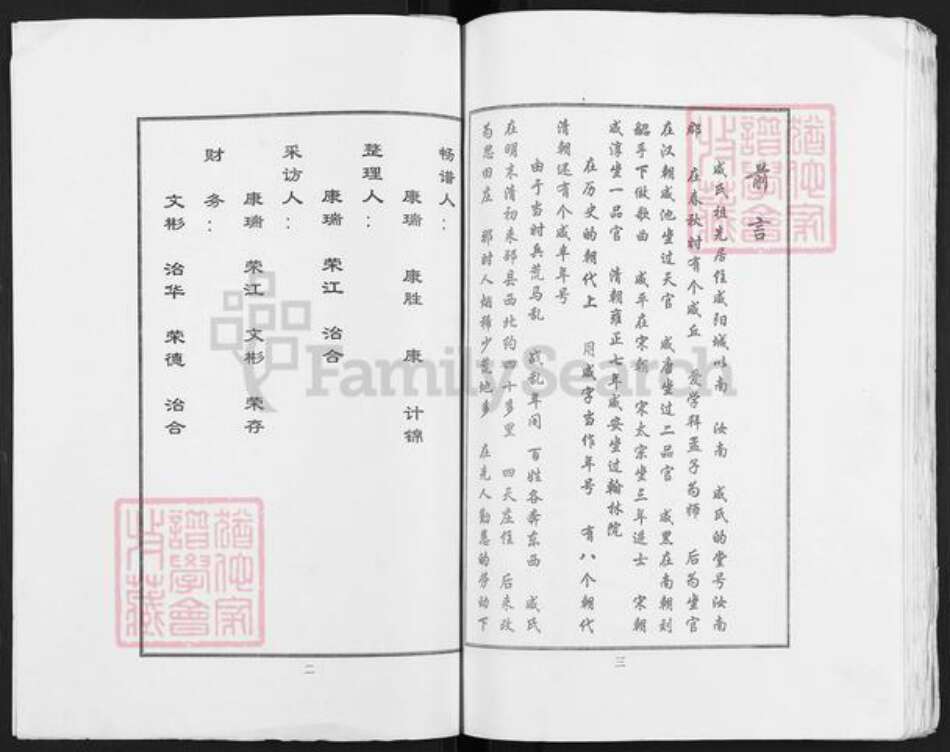 前言
咸氏祖先居住咸阳城以南 汝南 咸氏的堂号汝南
郡 在春秋时有个咸丘 爱学拜孟子为师 后为坐官
在汉朝咸池坐过天官 咸唐坐过二品官 咸黑在南朝刘
韶手下做歌曲 咸平在宋朝 宋太宗坐三年进士 宋朝
咸淳坐一品官 清朝雍正七年咸安坐过翰林院
在历史的朝代上 用咸字当作年号 有八个朝代
清朝还有个咸丰年号
由于当时兵荒马乱 战乱年间 百姓各奔东西 咸氏
在明末清初来邳县西北约四十多里 四天庄住 后来改
为思田庄 那时人烟稀少荒地多 在先人勤恳的劳动下
三
畅谱人：
康瑞 康胜 康 计锦
整理人：
康瑞 荣江 治合
采访人：
康瑞 荣江 文彬 荣存
财务：
文彬 治华 荣德 治合
二
FamilySearch
譜學會
收藏
譜學會
收藏